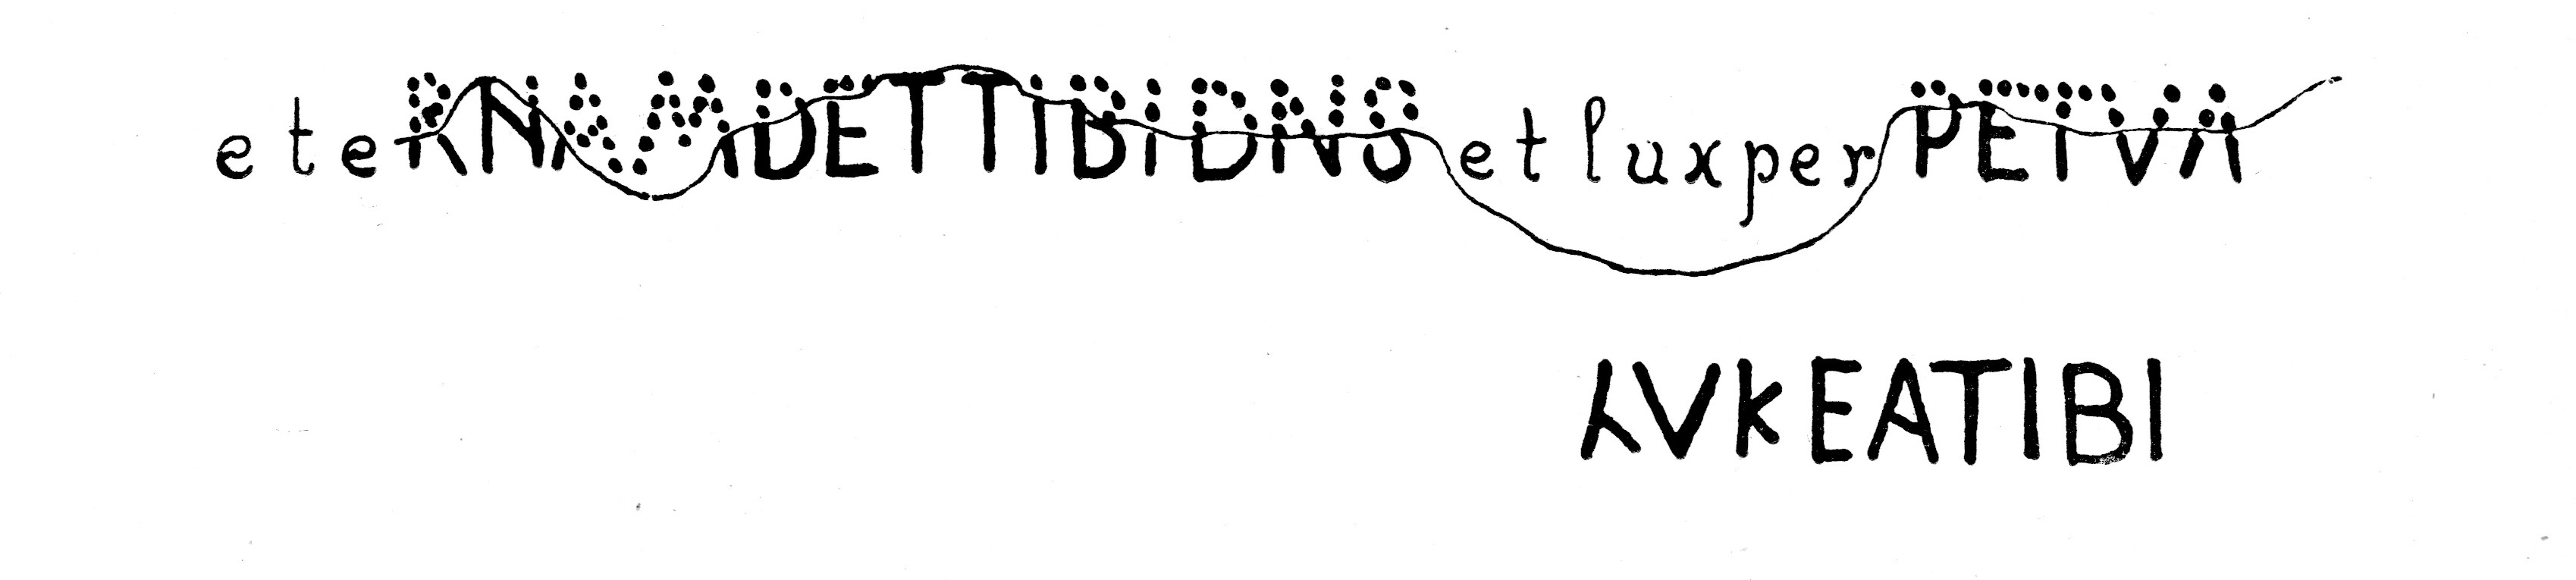 eteRNAMDETTIBIDNSetluxperPETVA
LVKEATIBI